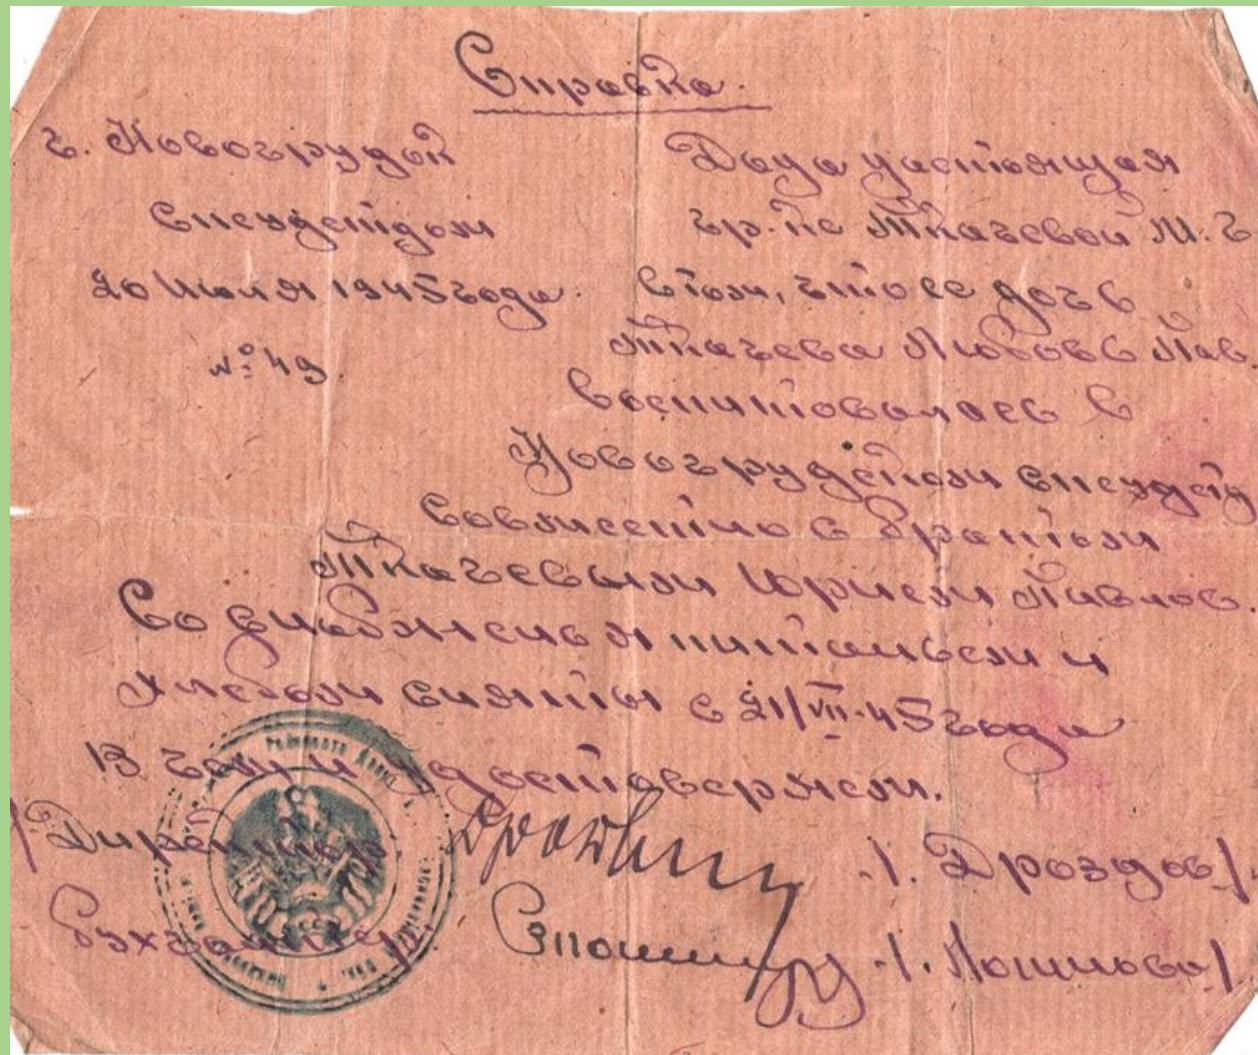 Справка.
г. Новогрудок
Спецдетдом
20 Июля 1945 года.
№ 49.
Дана настоящая
гр.-ке Ткачевой М. Г.
в том, что ее дочь
Ткачева Любовь Пав.
воспитовалась в
Новогрудском спецдетд
совместно с братом
Ткачевым Юрием Павлов.
Со снабженья питаньем и
хлебом сняты с 21/VII-45 года
В чем и удостовержем.
/Директор. /. Дроздов/.
Бухгалтер. /. Лошнова/